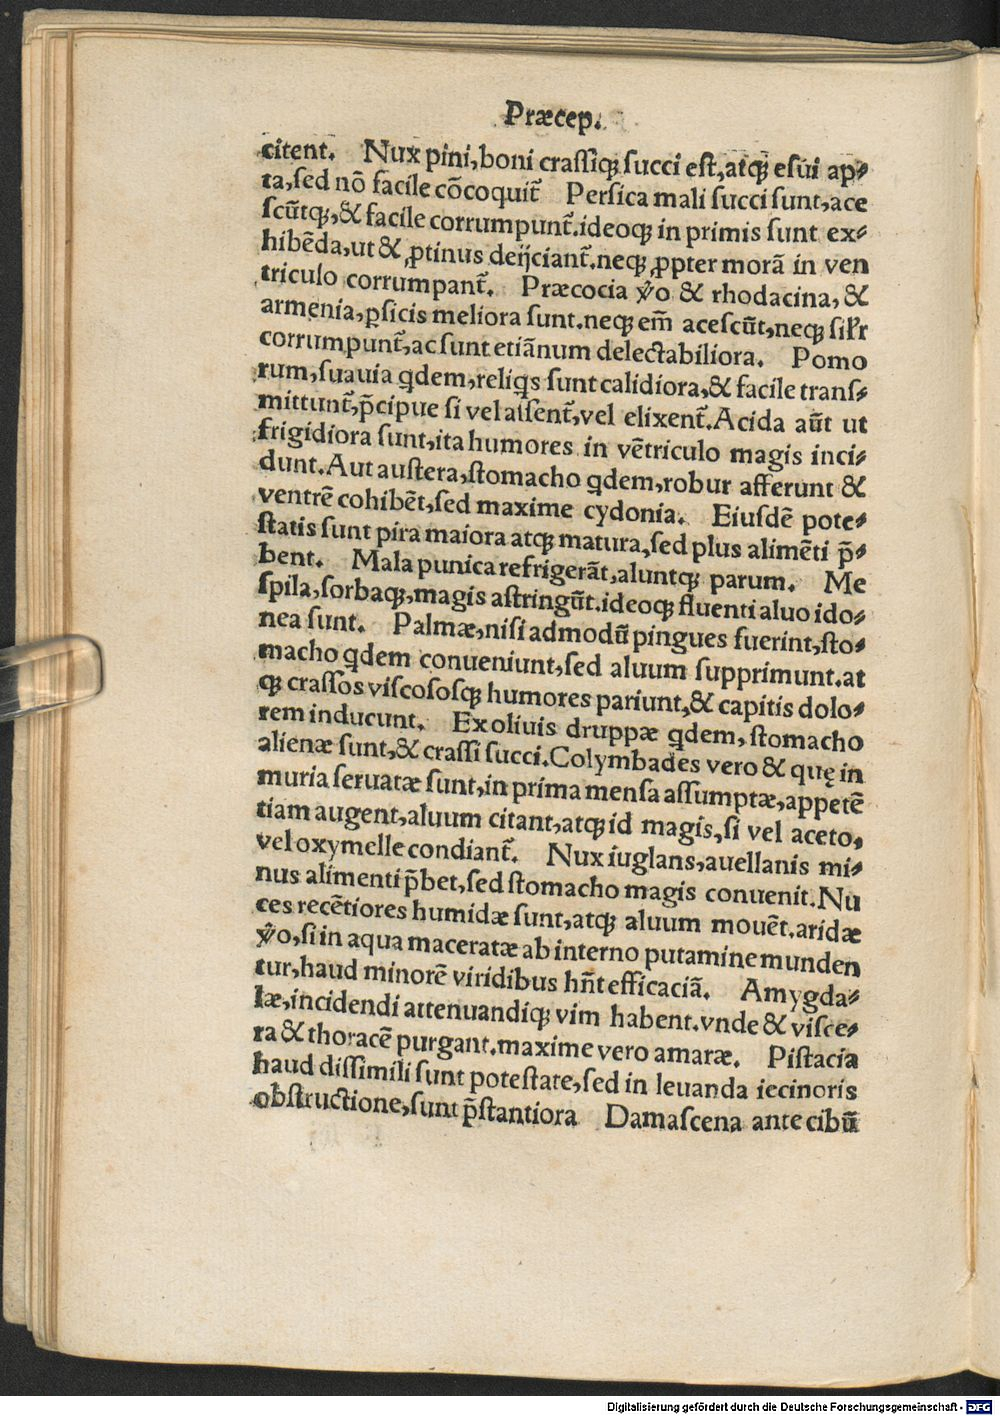 Præcep.
citent. Nux pini, boni crassiqꝫ succi est, atqꝫ esui ap⸗
ta, sed nō facile cōcoquit᷑ Persica mali succi sunt, ace
scūtqꝫ, & facile corrumpunt᷑. ideoqꝫ in primis sunt ex⸗
hibēda, ut & ꝓtinus deijciant᷑. neqꝫ ꝓpter morā in ven
triculo corrumpant᷑. Præcocia v̂o & rhodacina, &
armenia, ꝑsicis meliora sunt. neqꝫ em̄ acescūt, neqꝫ sił̓r
corrumpunt᷑, ac sunt etiānum delectabiliora. Pomo
rum, suauia qdem, reliqs sunt calidiora, & facile trans⸗
mittunt᷑, p̄cipue si vel assent᷑, vel elixent᷑. Acida aūt ut
frigidiora sunt, ita humores in vētriculo magis inci⸗
dunt. Aut austera, stomacho qdem, robur afferunt &
ventrē cohibēt, sed maxime cydonia. Eiusdē pote⸗
statis sunt pira maiora atqꝫ matura, sed plus alimēti p̄⸗
bent. Mala punica refrigerāt, aluntqꝫ parum. Me
spila, sorbaqꝫ, magis astringūt. ideoqꝫ fluenti aluo ido⸗
nea sunt. Palmæ, nisi admodū pingues fuerint, sto⸗
macho qdem conueniunt, sed aluum supprimunt. at
qꝫ crassos viscososqꝫ humores pariunt, & capitis dolo⸗
rem inducunt. Ex oliuis druppæ qdem, stomacho
alienæ sunt, & crassi succi. Colymbades vero & quę in
muria seruatæ sunt, in prima mensa assumptæ, appetē
tiam augent, aluum citant, atqꝫ id magis, si vel aceto,
vel oxymelle condiant᷑. Nux iuglans, auellanis mi⸗
nus alimenti p̄bet, sed stomacho magis conuenit. Nu
ces recētiores humidæ sunt, atqꝫ aluum mouēt. aridæ
v̂o, si in aqua maceratæ ab interno putamine munden
tur, haud minorē viridibus hn̄t efficaciā. Amygda⸗
læ, incidendi attenuandiqꝫ vim habent. vnde & visce⸗
ra & thoracē purgant. maxime vero amaræ. Pistacia
haud dissimili sunt potestate, sed in leuanda iecinoris
obstructione, sunt p̄stantiora Damascena ante cibū
Digitalisierung gefördert durch die Deutsche Forschungsgemeinschaft - DFG